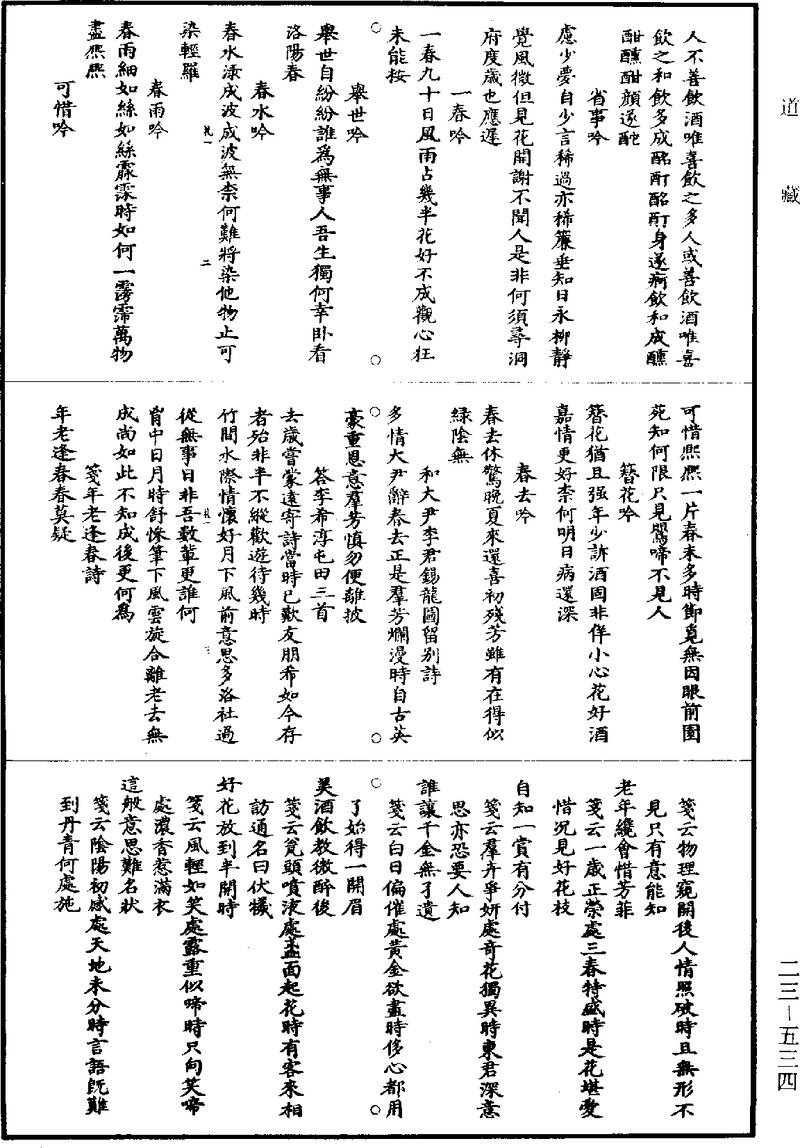 道藏
人不善飲酒唯喜飲之多人或善飲酒唯喜
飲之和飲多成酩酊酩酊身遂痾飲和成醺
酣醺酣顏遂酡
省事吟
慮少夢自少言稀過亦稀簾垂知日永柳靜
覺風微但見花開謝不聞人是非何須尋洞
府度歲也應遲
一春吟
一春九十日風雨占幾半花好不成觀心狂
未能按
舉世吟
舉世自紛紛誰爲無事人吾生獨何幸卧看
洛陽春
春水吟
春水漆成波成波無柰何難將染他物止可
染輕羅
春雨吟
春雨細如絲如絲霡霂時如何一霶霈萬物
盡熈熈
可惜吟
可惜熈熈一片春未多時節覔無因眼前園
苑知何限只見鶯啼不見人
簪花吟
簪花猶且强年少訴酒固非佯小心花好酒
嘉情更好柰何明日病還深
春去吟
春去休驚晚夏來還喜初殘芳雖有在得似
綠陰無
和大尹李君錫龍圖留别詩
多情大尹辭春去正是羣芳爛漫時自古英
豪重恩意羣芳慎勿便離披
答李希淳屯田三首
去歲嘗蒙遠寄詩當時已歎友朋希如今存
者殆非半不縱歡遊待幾時
竹間水際情懷好月下風前意思多洛社過
從無事日非吾數輩更誰何
胷中日月時舒慘筆下風雲旋合離老去無
成尚如此不知成後更何爲
箋年老逢春詩
年老逢春春莫疑
箋云物理窺開後人情照破時且無形不
見只有意能知
老年纔會惜芳菲
箋云一歲正榮處三春特盛時是花堪愛
惜況見好花枝
自知一賞有分付
箋云羣卉爭妍處奇花獨異時東君深意
思亦恐要人知
誰讓千金無孑遺
箋云白日偏催處黄金欲盡時侈心都用
了始得一開眉
美酒飲教微醉後
箋云瓮頭噴液處盞面起花時有客來相
訪通名曰伏犧
好花放到半開時
箋云風輕如笑處露重似啼時只向笑啼
處濃香惹滿衣
這般意思難名狀
箋云陰陽初感處天地未分時言語既難
到丹青何處施
二三－五三四